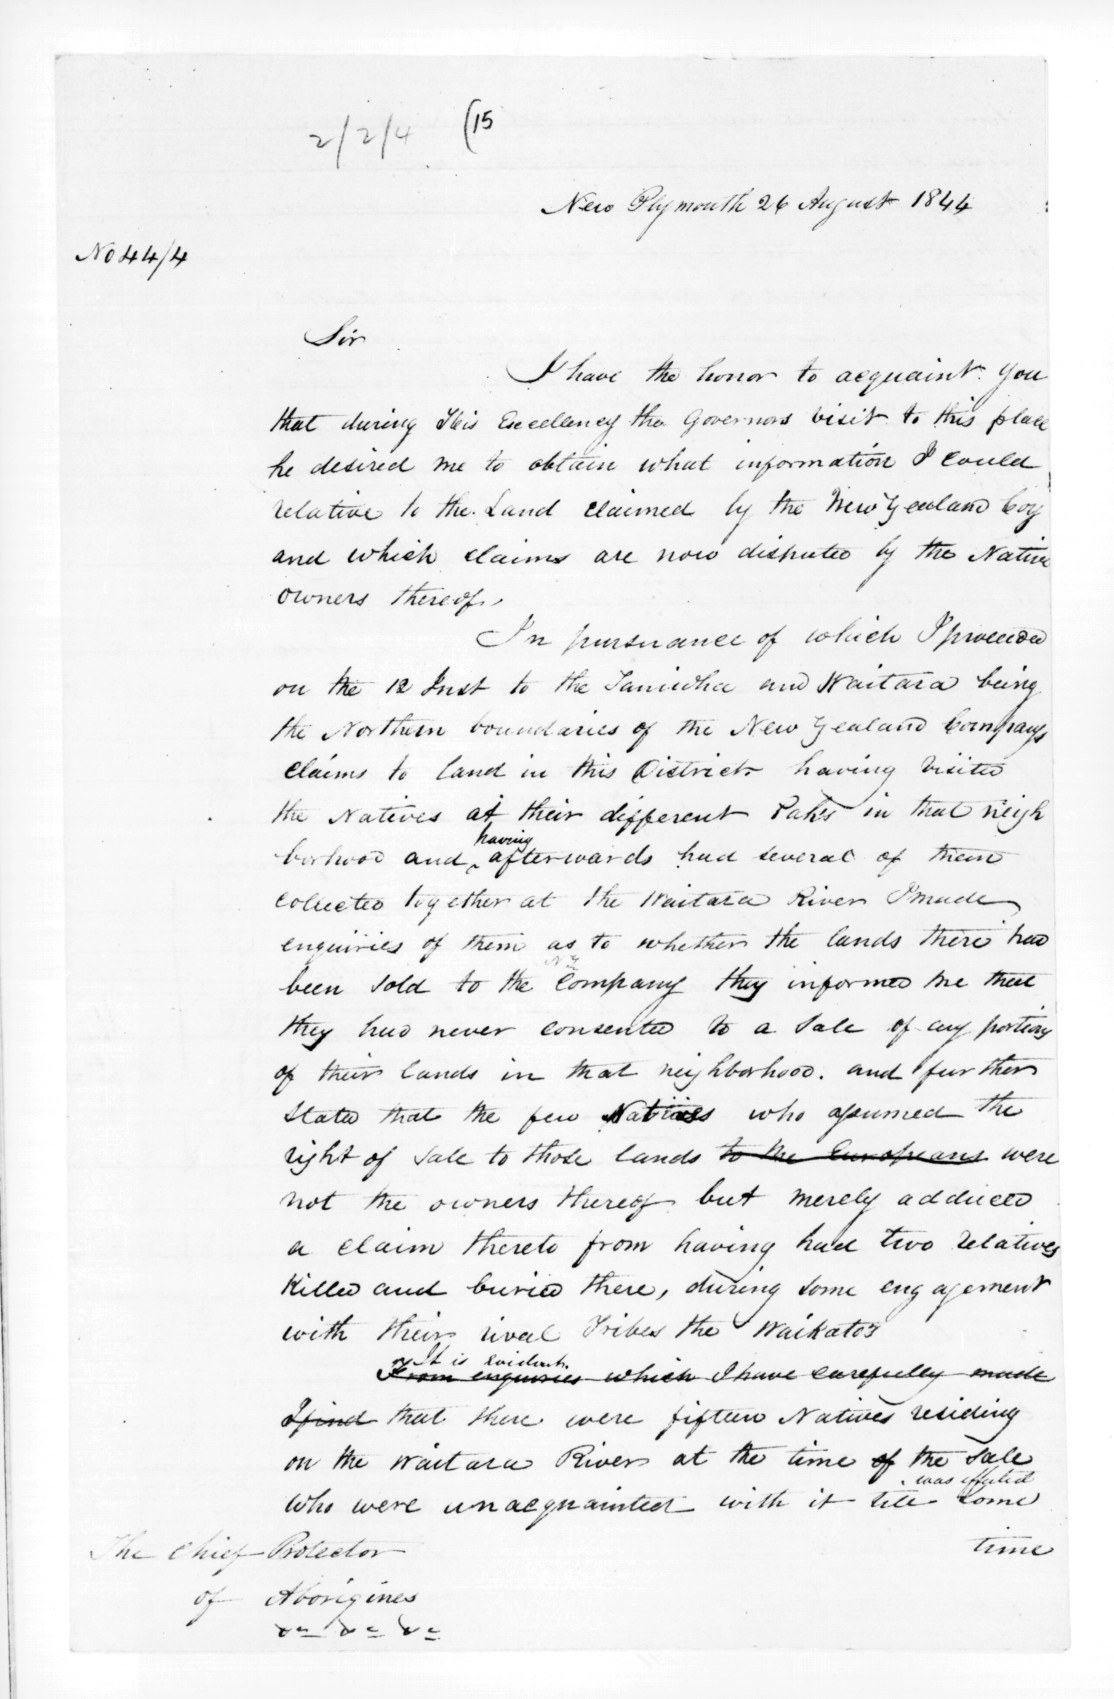 2/2/4 (15
New Plymouth 26 August 1844
No 44/4
Sir
I have the honor to acquaint you
that during His Excellency the Governors visit to this place
he desired me to obtain what information I could
relative to the Land claimed by the New Zealand Coy
and which claims are now disputed by the Native
owners thereof.
In pursuance of which I proceeded
on the 12 Inst to the Taniwha and Waitara being
the Northern boundaries of the New Zealand Companys
claims to land in this District having visited
the Natives at their different Pahs in that neigh
borhood and having afterwards had several of them
collected together at the Waitara River I made
enquiries of them as to whether the lands there had
been sold to the NZ Company they informed me that
they had never consented to a sale of any portion
of their lands in that neighborhood. and further
stated that the few Natives who assumed the
right of sale to those lands to the Europeans were
not the owners thereof but merely adduced
a claim thereto from having had two relatives
killed and buried there, during some engagement
with their rival Tribes the Waikatos
It is evident
From enquiries which I have carefully made
I find that there were fifteen Natives residing
on the Waitara River at the time of the sale
was effected
who were unacquainted with it till some
time
The Chief Protector
of Aborigines
&c &c &c